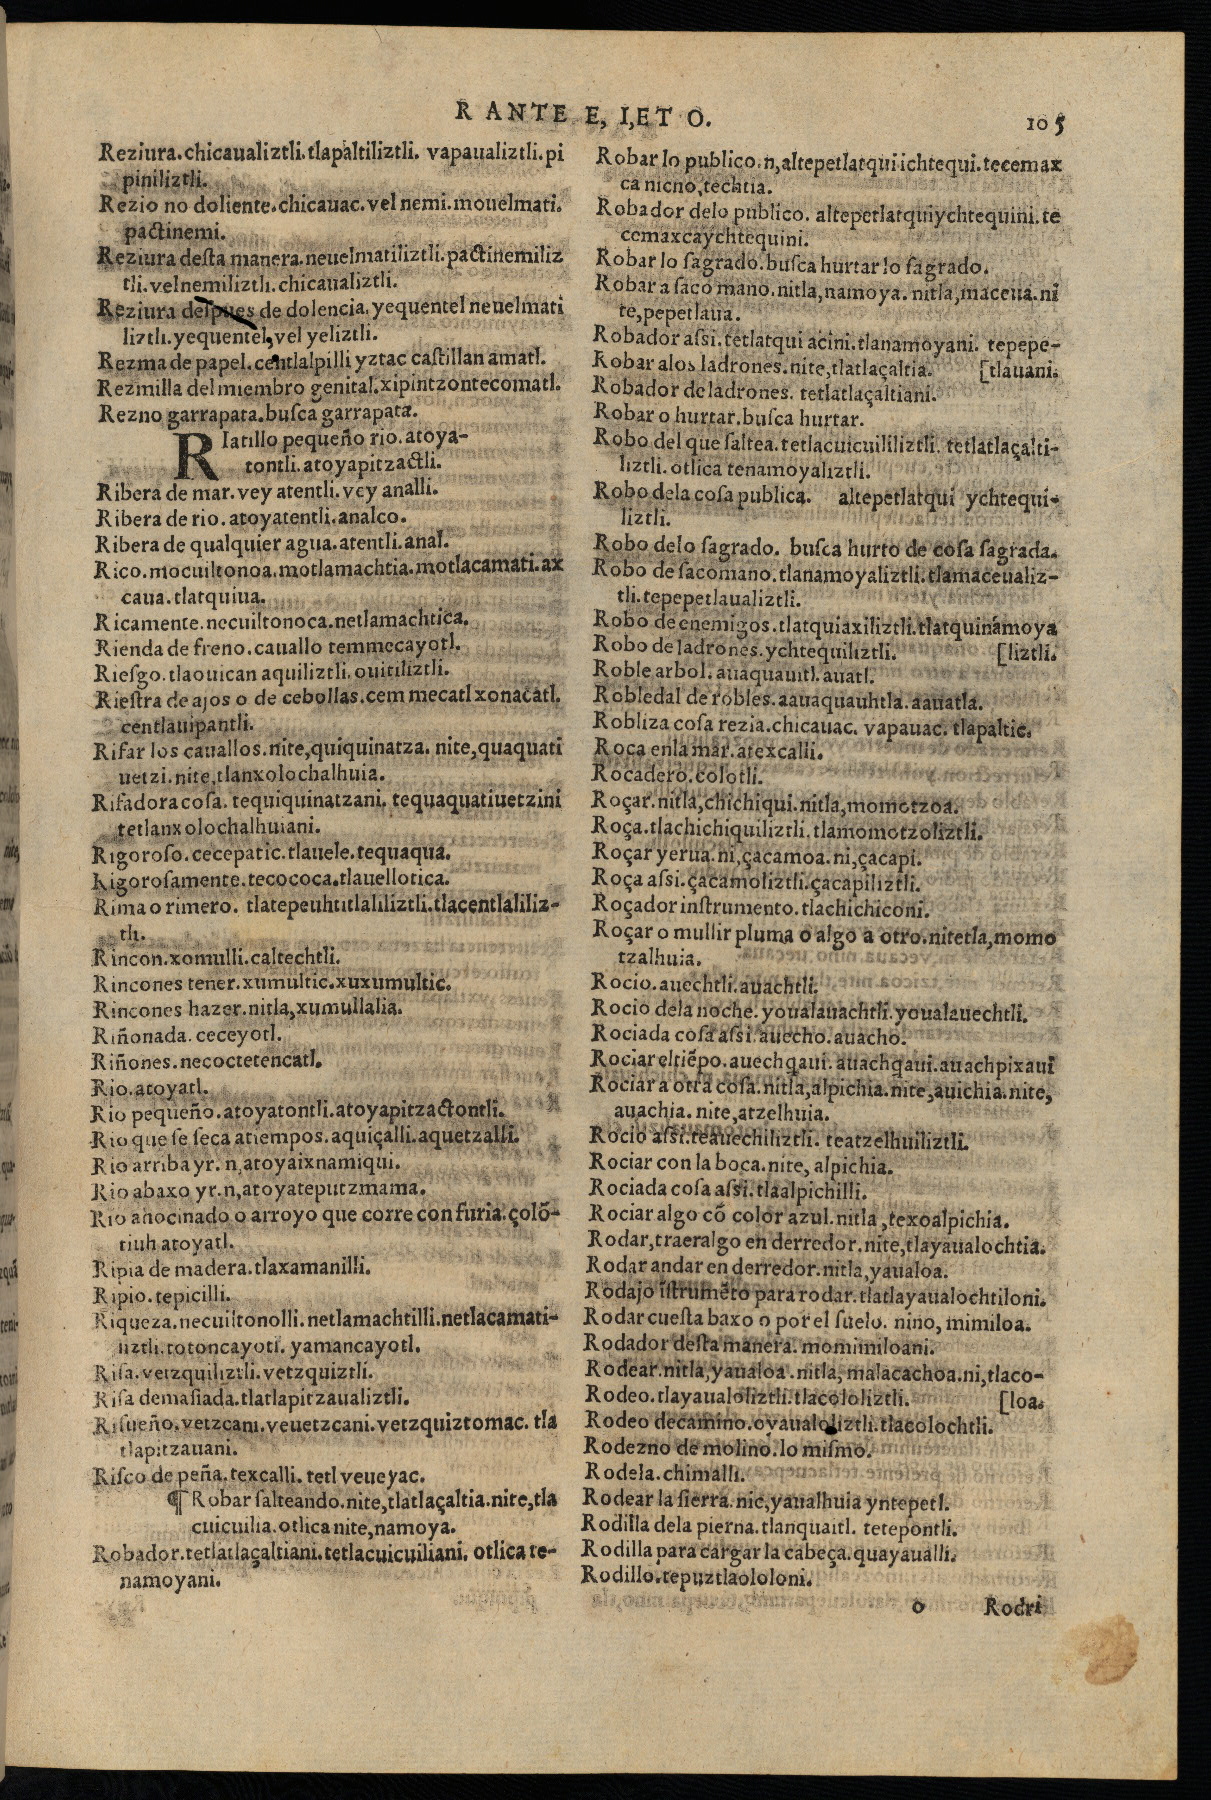 R ANTE E, I, ET O.
105
Reziura.chicaualiztli.tlapaltiliztli. vapaualiztli.pi
piniliztli.
Rezio no doliente.chicauac.vel nemi.mouelmati.
pactinemi.
Reziura desta manera.neuelmatiliztli.pactinemiliz
tli.velnemiliztli.chicaualiztli.
Reziura despues de dolencia.yequentel neuelmati
liztli.yequentel,vel yeliztli.
Rezma de papel.centlalpilli yztac castillan amatl.
Rezmilla del miembro genital.xipintzontecomatl.
Rezno garrapata.busca garrapata.
RIatillo pequeño rio.atoya-
tontli.atoyapitzactli.
Ribera de mar.vey atentli.vey analli.
Ribera de rio.atoyatentli.analco.
Ribera de qualquier agua.atentli.anal.
Rico.mocuiltonoa.motlamachtia.motlacamati.ax
caua.tlatquiua.
Ricamente.necuiltonoca.netlamachtica.
Rienda de freno.cauallo temmecayotl.
Riesgo.tlaouican aquiliztli.ouitiliztli.
Riestra de ajos o de cebollas.cem mecatl xonacatl.
centlauipantli.
Rifar los cauallos.nite,quiquinatza. nite,quaquati
uetzi.nite,tlanxolochalhuia.
Rifadora cosa. tequiquinatzani. tequaquatiuetzini
tetlanxolochalhuiani.
Rigoroso.cecepatic.tlauele.tequaqua.
Rigorosamente.tecococa.tlauellotica.
Rima o rimero. tlatepeuhtitlaliliztli.tlacentlaliliz-
tli.
Rincon.xomulli.caltechtli.
Rincones tener.xumultic.xuxumultic.
Rincones hazer.nitla,xumullalia.
Riñonada.ceceyotl.
Riñones.necoctetencatl.
Rio.atoyatl.
Rio pequeño.atoyatontli.atoyapitzactontli.
Rio que se seca atiempos.aquiçalli.aquetzalli.
Rio arriba yr. n,atoyaixnamiqui.
Rio abaxo yr.n,atoyateputzmama.
Rio añocinado o arroyo que corre con furia.çolõ-
tiuh atoyatl.
Ripia de madera.tlaxamanilli.
Ripio.tepicilli.
Riqueza.necuiltonolli.netlamachtilli.netlacamati-
liztli.totoncayotl. yamancayotl.
Risa.vetzquiliztli.vetzquiztli.
Risa demasiada.tlatlapitzaualiztli.
Risueño.vetzcani.veuetzcani.vetzquiztomac. tla
tlapitzauani.
Risco de peña.texcalli. tetl veueyac.
¶ Robar salteando.nite,tlatlaçaltia.nite,tla
cuicuilia.otlica nite,namoya.
Robador.tetlatlaçaltiani.tetlacuicuiliani. otlica te-
namoyani.
Robar lo publico.n,altepetlatqui ichtequi.tecemax
ca nicno,techtia.
Robador delo publico. altepetlatquiychtequini.te
cemaxcaychtequini.
Robar lo sagrado.busca hurtar lo sagrado.
Robar a saco mano.nitla,namoya. nitla,maceua.ni
te,pepetlaua.
Robador assi.tetlatqui acini.tlanamoyani. tepepe-
Robar alos ladrones.nite,tlatlaçaltia. [tlauani.
Robador de ladrones. tetlatlaçaltiani.
Robar o hurtar.busca hurtar.
Robo del que saltea.tetlacuicuililiztli. tetlatlaçalti-
liztli.otlica tenamoyaliztli.
Robo dela cosa publica. altepetlatqui ychtequi-
liztli.
Robo delo sagrado. busca hurto de cosa sagrada.
Robo de sacomano.tlanamoyaliztli.tlamaceualiz-
tli.tepepetlaualiztli.
Robo de enemigos.tlatquiaxiliztli.tlatquinamoya
Robo de ladrones.ychtequiliztli. [liztli.
Roble arbol.auaquauitl.auatl.
Robledal de robles.aauaquauhtla.aauatla.
Robliza cosa rezia.chicauac. vapauac. tlapaltic.
Roca enla mar.atexcalli.
Rocadero.colotli.
Roçar.nitla,chichiqui.nitla,momotzoa.
Roça.tlachichiquiliztli.tlamomotzoliztli.
Roçar yerua.ni,çacamoa.ni,çacapi.
Roça assi.çacamoliztli.çacapiliztli.
Roçador instrumento.tlachichiconi.
Roçar o mullir pluma o algo a otro.nitetla,momo
tzalhuia.
Rocio.auechtli.auachtli.
Rocio dela noche.youalauachtli.youalauechtli.
Rociada cosa assi.auecho.auacho.
Rociar el tiẽpo.auechqaui.auachqaui.auachpixaui
Rociar a otra cosa.nitla,alpichia.nite,auichia.nite,
auachia.nite,atzelhuia.
Rocio assi.teauechiliztli. teatzelhuiliztli.
Rociar con la boca.nite, alpichia.
Rociada cosa assi.tlaalpichilli.
Rociar algo cõ color azul.nitla,texoalpichia.
Rodar,traer algo en derredor.nite,tlayaualochtia.
Rodar andar en derredor.nitla,yaualoa.
Rodajo ĩstrumẽto para rodar.tlatlayaualochtiloni.
Rodar cuesta baxo o por el suelo. nino, mimiloa.
Rodador desta manera. momimiloani.
Rodear.nitla,yaualoa.nitla,malacachoa.ni,tlaco-
Rodeo.tlayaualoliztli.tlacololiztli. [loa.
Rodeo de camino.oyaualoliztli.tlacolochtli.
Rodezno de molino.lo mismo.
Rodela.chimalli.
Rodear la sierra.nic,yaualhuia yntepetl.
Rodilla dela pierna.tlanquaitl. tetepontli.
Rodilla para cargar la cabeça.quayaualli.
Rodillo.tepuztlaololoni.
o Rodri